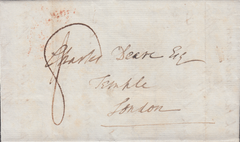 Charles Deare Esq
Temple
London
8